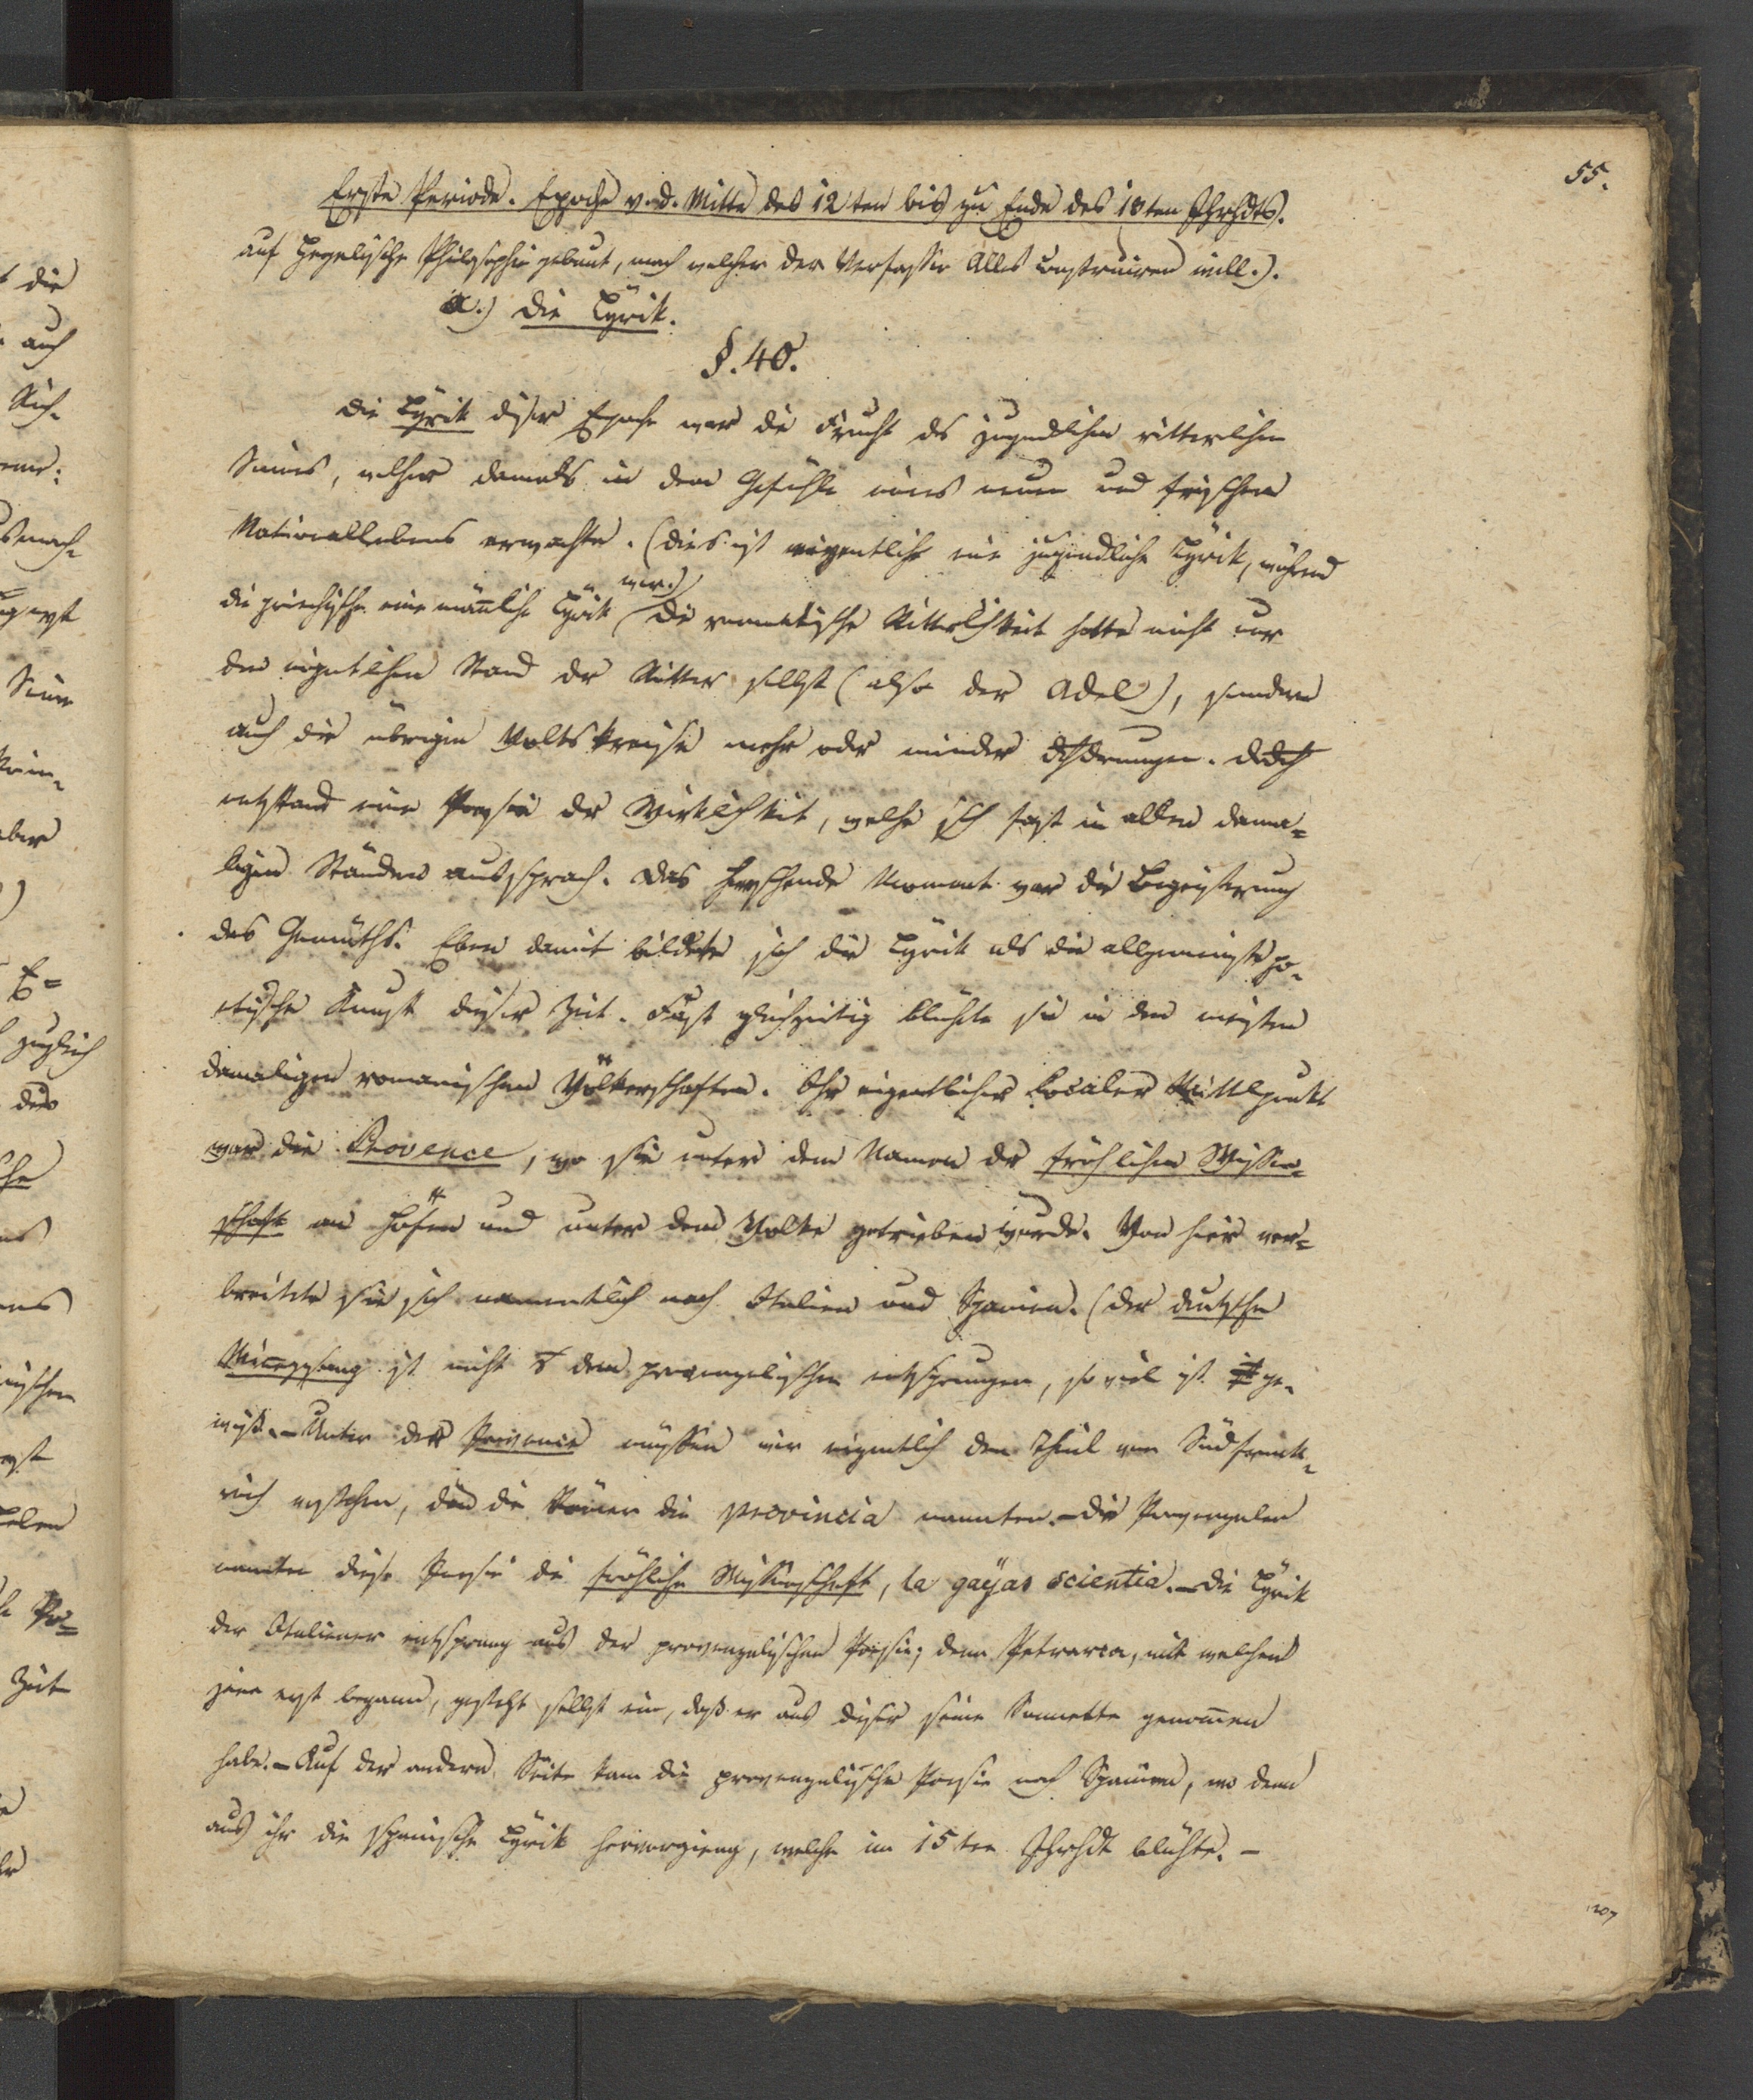 55.
Erste Periode. Epoche v. d. Mitte des 12ten bis zu Ende des 18ten Jhrhdts.
auf Hegelische Philosophie gebaut, nach welcher der Verfasser Alles construiren will.).
a.) die Lÿrik.
§. 40.
die Lÿrik dieser Epoche war die Frucht des jugendlichen ritterlichen
Sinnes, welcher damals in dem Gefühle eines neuen und frischen
Nationallebens erwachte. (dies ist eigentlich eine jugendliche Lÿrik, während
die griechische eine männliche Lÿrik war.) Die romantische Ritterlichkeit hatte nicht nur
den eigentlichen Stand der Ritter selbst (also der Adel), sondern
auch die übrigen Volkskreise mehr oder minder durchdrungen. dadurch
entstand eine Poesie der Wirklichkeit, welche sich fast in allen dama=
ligen Ständen aussprach. das herrschende Moment war die Begeisterung
des Gemüths. Eben damit bildete sich die Lÿrik als die allgemeinste po-
etische Kunst dieser Zeit. Fast gleichzeitig blühte sie in den meisten
damaligen romanischen Völkerschaften. Ihr eigentlicher localer Mittelpunkt
war die Provence, wo sie unter dem Namen der fröhlichen Wissen=
schaft an Höfen und unter dem Volke getrieben wurde. Von hier ver=
breitete sie sich namentlich nach Italien und Spanien. (der deutsche
Minnegesang ist nicht dem provenzalischen entsprungen, so viel ist ge-
wiß. - Unter der Provence müssen wir eigentlich den Theil von Südfrank-
reich verstehen, den die Römer die provincia nannten. - die Provenzalen
nannten diese Poesie die fröhliche Wissenschaft, la gaÿas scientia. - Die Lÿrik
der Italiener entsprang aus der provenzalischen Poesie; denn Petrarca, mit welchem
jene erst begann, gesteht selbst ein, daß er aus dieser seine Sonnette genommen
habe. - Auf der andern Seite kam die provenzalische Poesie nach Spanien, wo dann
aus ihr die spanische Lÿrik hervorgieng, welche im 15ten Jhrhdt blühte. -